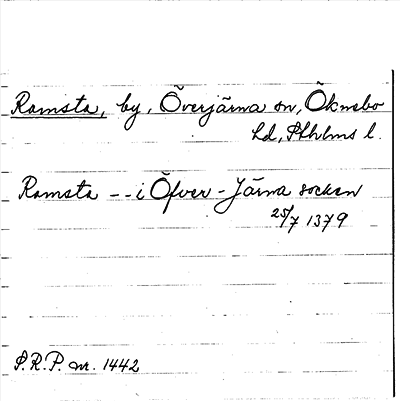 Ramsta, by, Överjärna sn, Öknebo
hd, Sthlms l.
Ramsta -- i Öfver-Järna socken
25/7 1379
S.R.P. nr. 1442